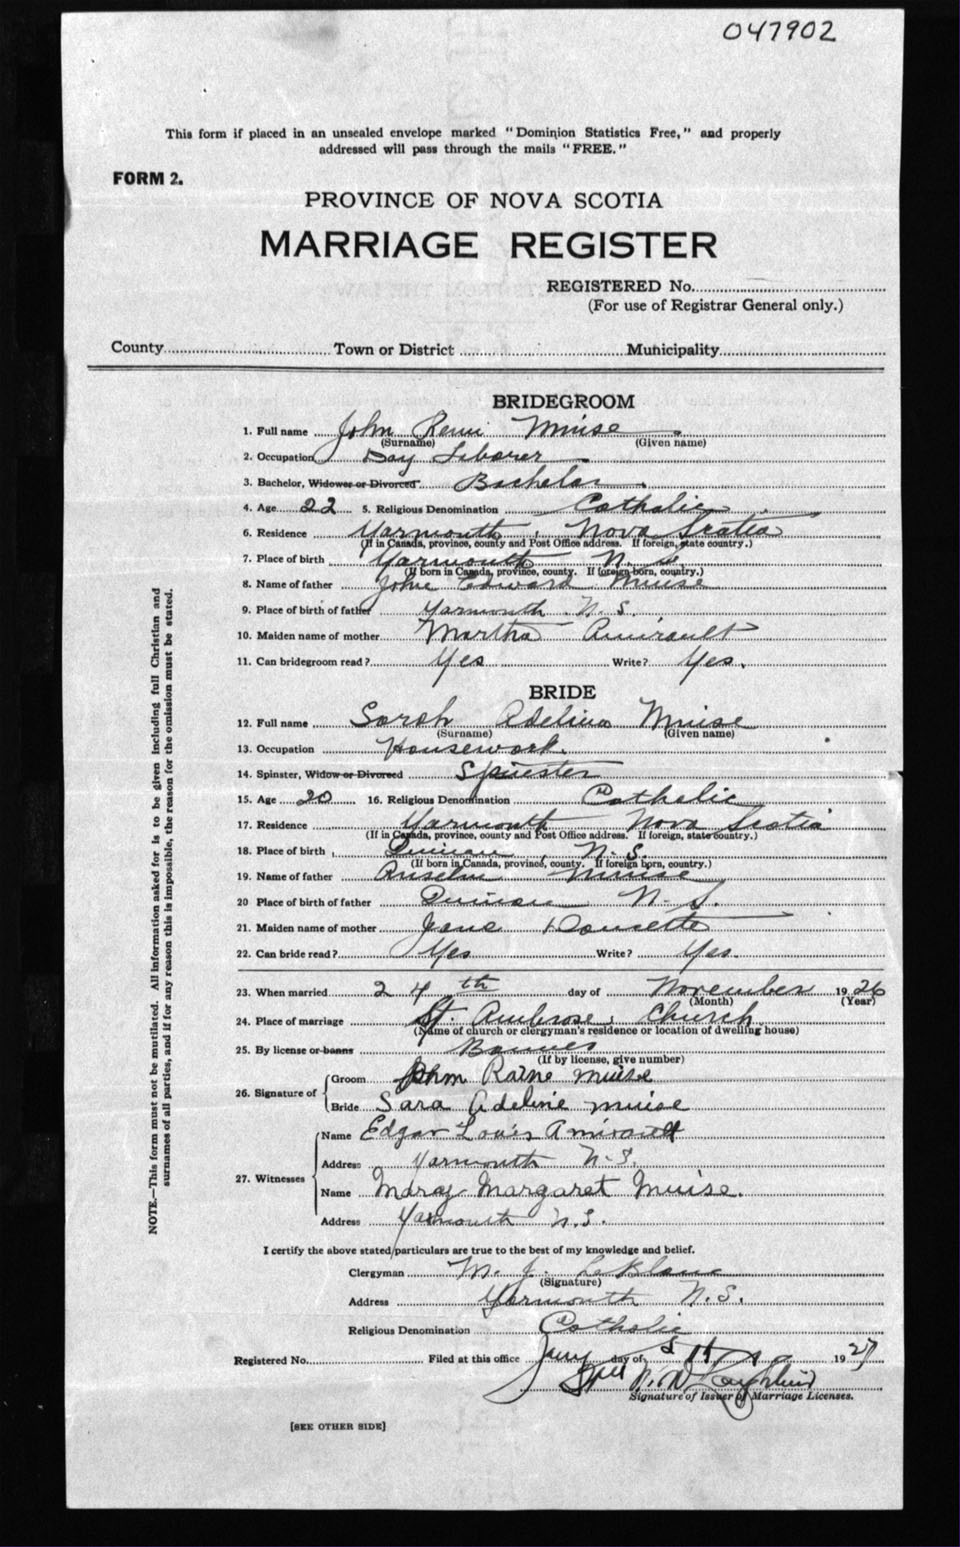 047902
This form if placed in an unsealed envelope marked "Dominion Statistics Free," and properly
addressed will pass through the mails "FREE."
FORM 2.
PROVINCE OF NOVA SCOTIA
MARRIAGE REGISTER
REGISTERED No.
(For use of Registrar General only.)
County Town or District Municipality
BRIDEGROOM
1. Full name John Remi Muise
(Surname) (Given name)
2. Occupation Day Laborer
3. Bachelor, Widower or Divorced Bachelor
4. Age 22 5. Religious Denomination Catholic
6. Residence Yarmouth, Nova Scotia
(If in Canada, province, county and Post Office address. If foreign, state country.)
7. Place of birth Yarmouth N. S.
(If born in Canada, province, county. If foreign born, country.)
8. Name of father John Edward Muise
9. Place of birth of father Yarmouth N. S.
10. Maiden name of mother Martha Amirault
11. Can bridegroom read? Yes Write? Yes.
BRIDE
12. Full name Sarah Adelina Muise
(Surname) (Given name)
13. Occupation Housework.
14. Spinster, Widow or Divorced Spinster
15. Age 20 16. Religious Denomination Catholic
17. Residence Yarmouth Nova Scotia
(If in Canada, province, county and Post Office address. If foreign, state country.)
18. Place of birth Quinan, N. S.
(If born in Canada, province, county. If foreign born, country.)
19. Name of father Anselm Muise
20 Place of birth of father Quinan N. S.
21. Maiden name of mother Jane Doucette
22. Can bride read? Yes Write? Yes.
23. When married 24th day of November 1926
(Month) (Year)
24. Place of marriage St. Ambrose, Church
(Name of church or clergyman's residence or location of dwelling house)
25. By license or banns Bannes
(If by license, give number)
26. Signature of Groom John Raine muise
Bride Sara Adeline muise
27. Witnesses Name Edgar Louis Amirault
Address Yarmouth N.S.
Name Mary Margaret Muise.
Address Yarmouth N.S.
I certify the above stated particulars are true to the best of my knowledge and belief.
Clergyman M. J. LeBlanc
(Signature)
Address Yarmouth N.S.
Religious Denomination Catholic
Registered No. Filed at this office day of 1927
Signature of Issuer of Marriage Licenses.
[SEE OTHER SIDE]
NOTE.—This form must not be mutilated. All information asked for is to be given including full Christian and
surnames of all parties, and if for any reason this is impossible, the reason for the omission must be stated.